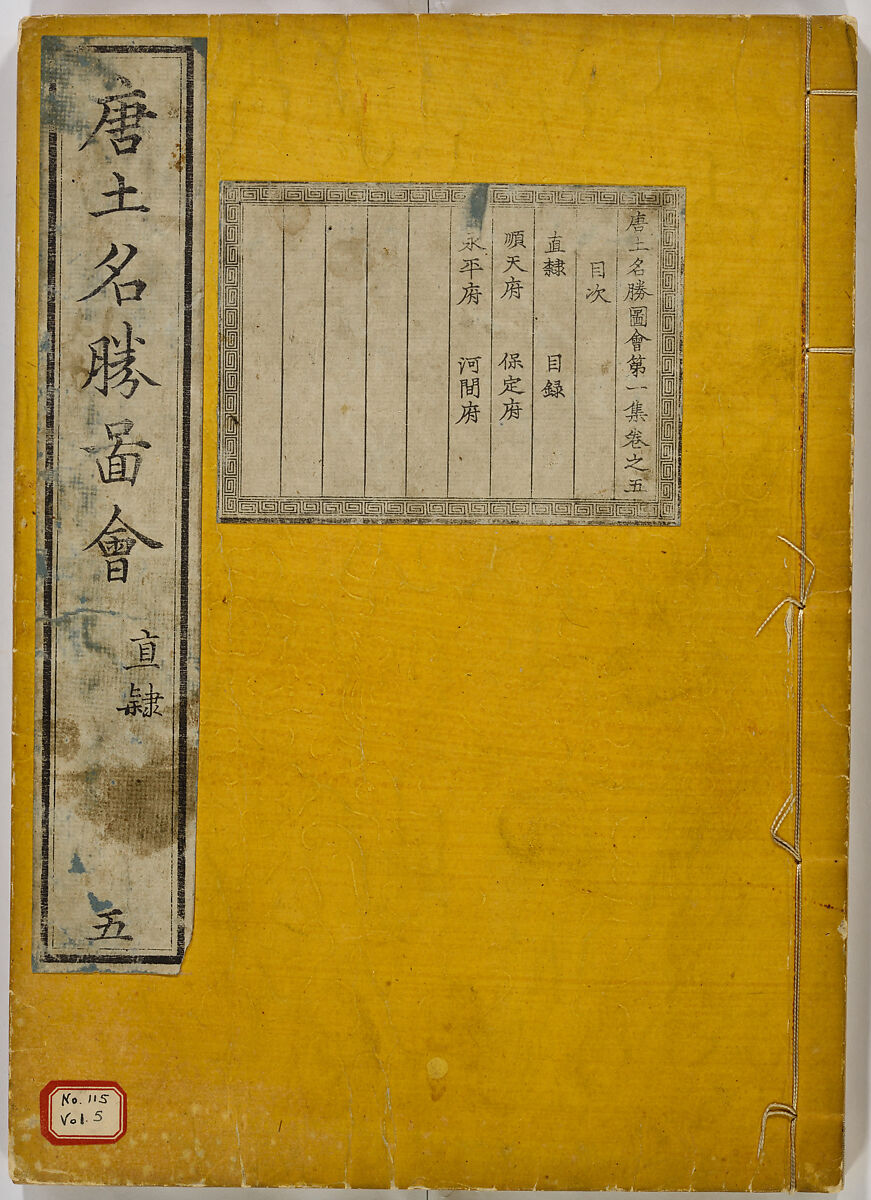 唐土名勝啚會
直隷
五
唐土名勝圖會第一集卷之五
目次
直隸 目録
順天府 保定府
永平府 河間府
No. 115
Vol. 5